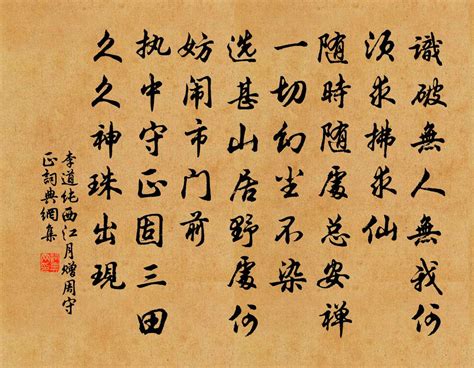 識破無人無我何
须求拂求仙
随時随處总安禅
一切幻尘不染
选甚山居野處何
妨闹市门前
执中守正固三田
久久神珠出現
李道纯西江月赠周守
正詞典網集